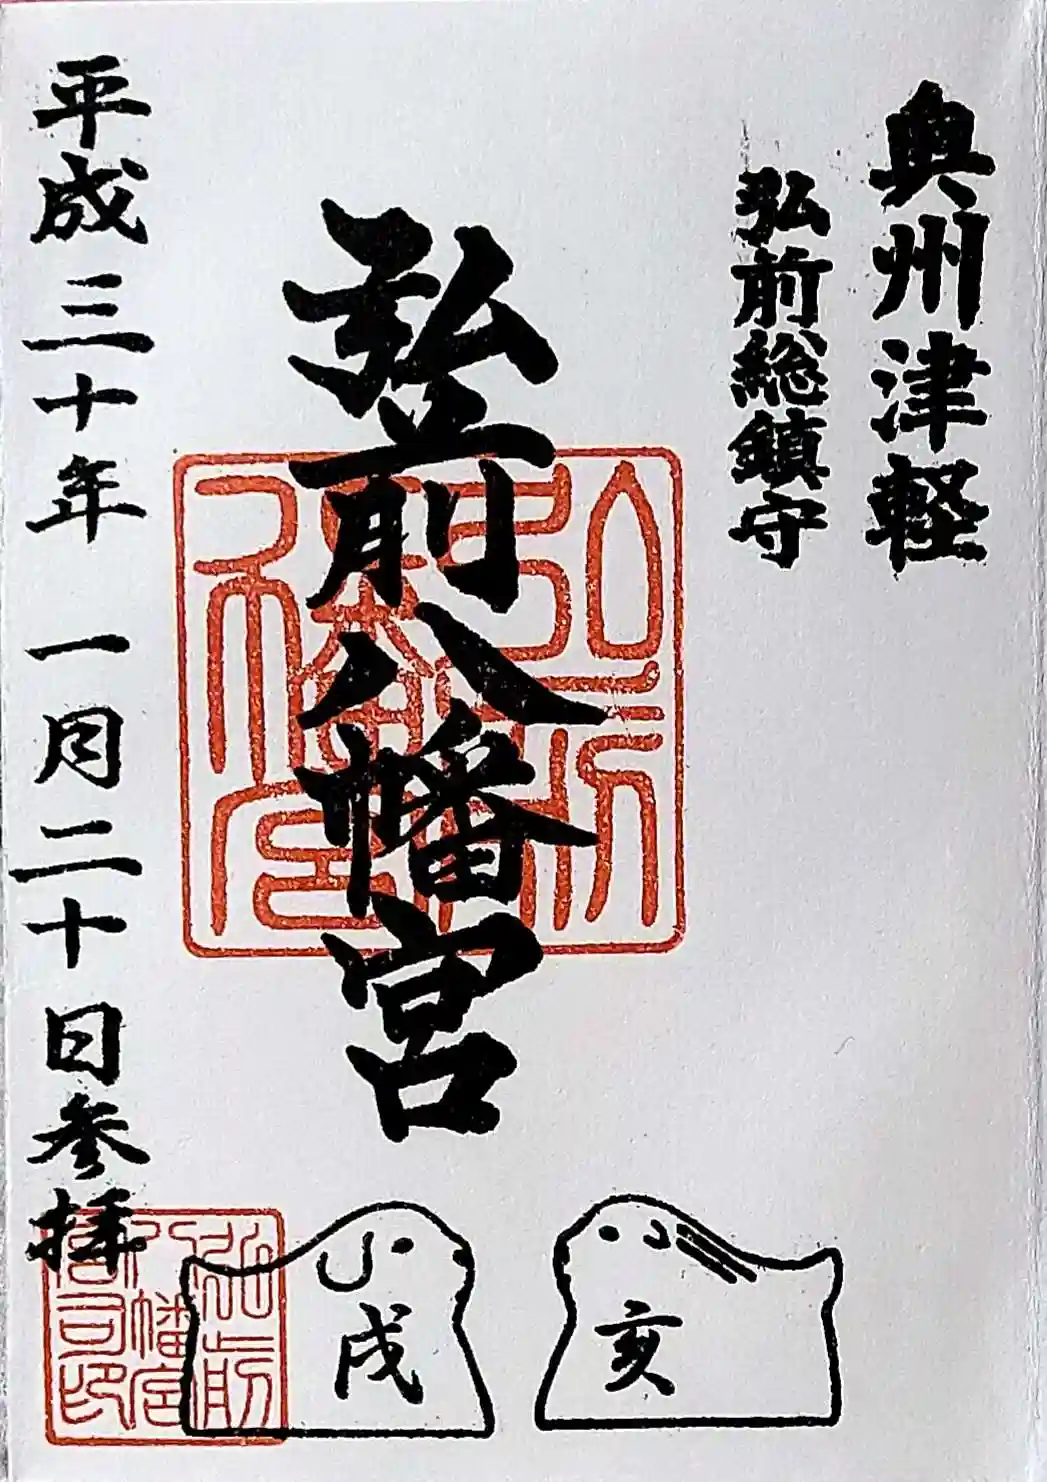 奥州津軽
弘前総鎮守
弘前八幡宮
平成三十年 一月二十日参拝
亥
戌
弘前
八幡宮
宮司印